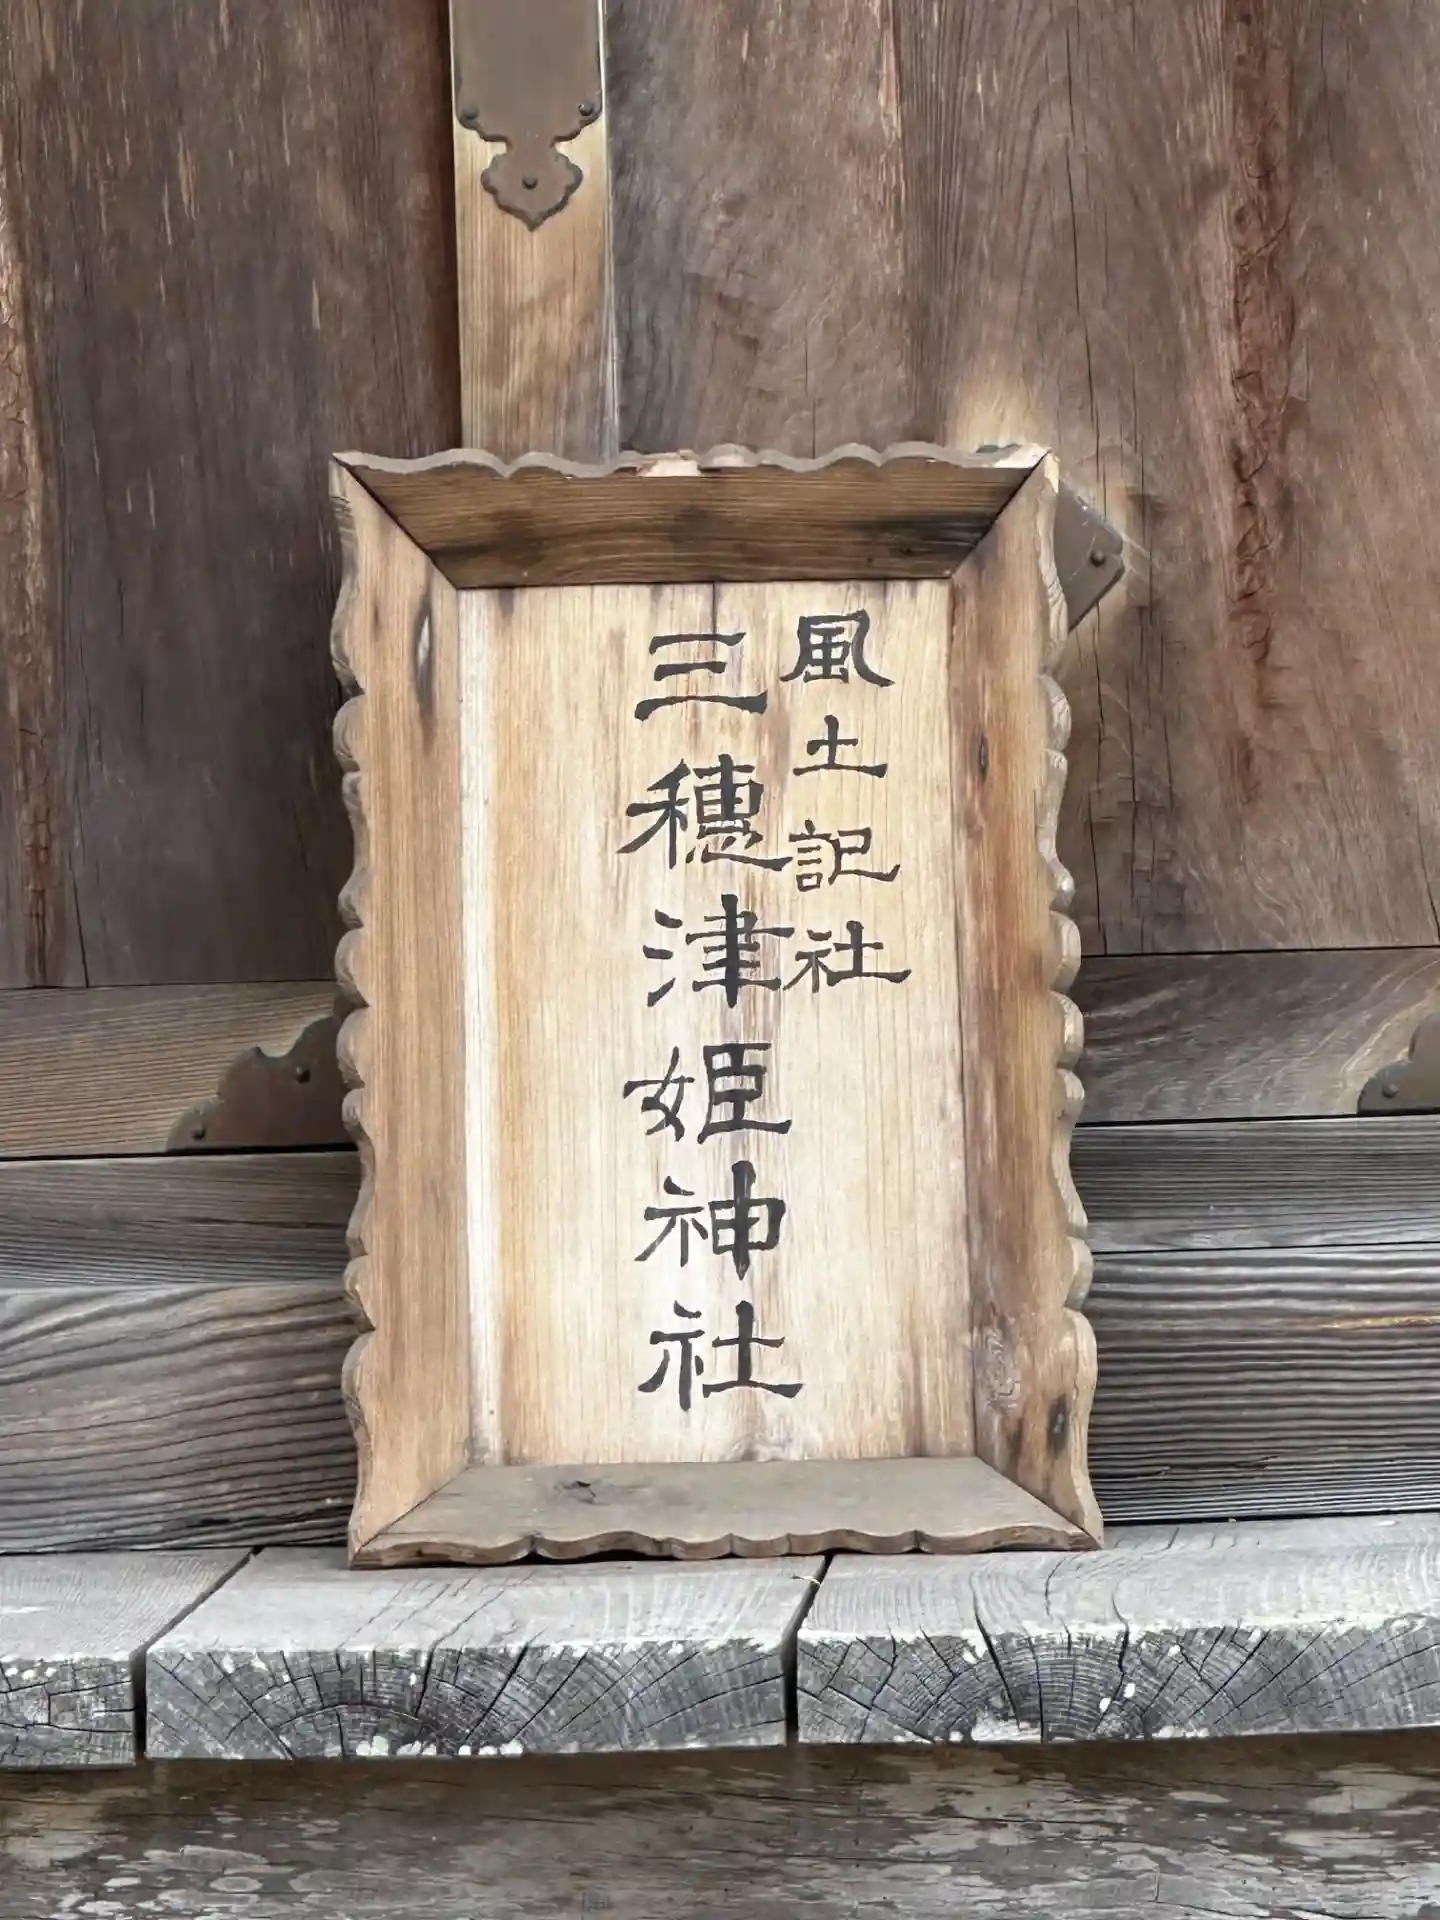 風土記社
三穗津姫神社